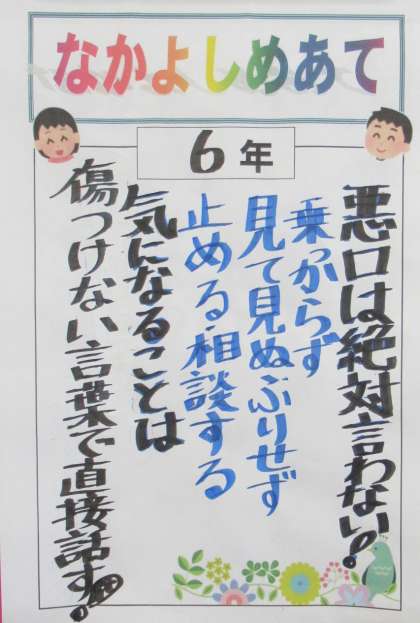 なかよしめあて
6年
悪口は絶対言わない!
乗っからず
見て見ぬふりせず
止める・相談する
気になることは
傷つけない言葉で直接話す!